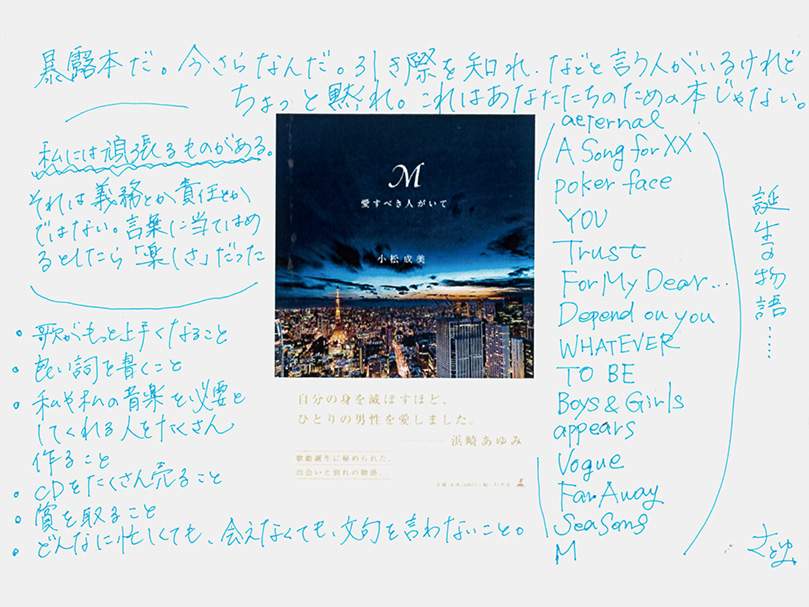 暴露本だ。今さらなんだ。引き際を知れ、などと言う人がいるけれど
ちょっと黙れ。これはあなたたちのための本じゃない。
私には頑張るものがある。
それは義務とか責任とか
ではない。言葉に当てはめ
るとしたら「楽しさ」だった
・歌がもっと上手くなること
・良い詞を書くこと
・私や私の音楽を必要と
してくれる人をたくさん
作ること
・CDをたくさん売ること
・賞を取ること
・どんなに忙しくても、会えなくても、文句を言わないこと。
M
愛すべき人がいて
小松成美
自分の身を滅ぼすほど、
ひとりの男性を愛しました。
浜崎あゆみ
歌姫誕生に秘められた、
出会いと別れの物語。
aeternal
A Song for XX
poker face
YOU
Trust
For My Dear...
Depend on you
WHATEVER
TO BE
Boys & Girls
appears
Vogue
Far Away
SeaSons
M
誕生の物語……